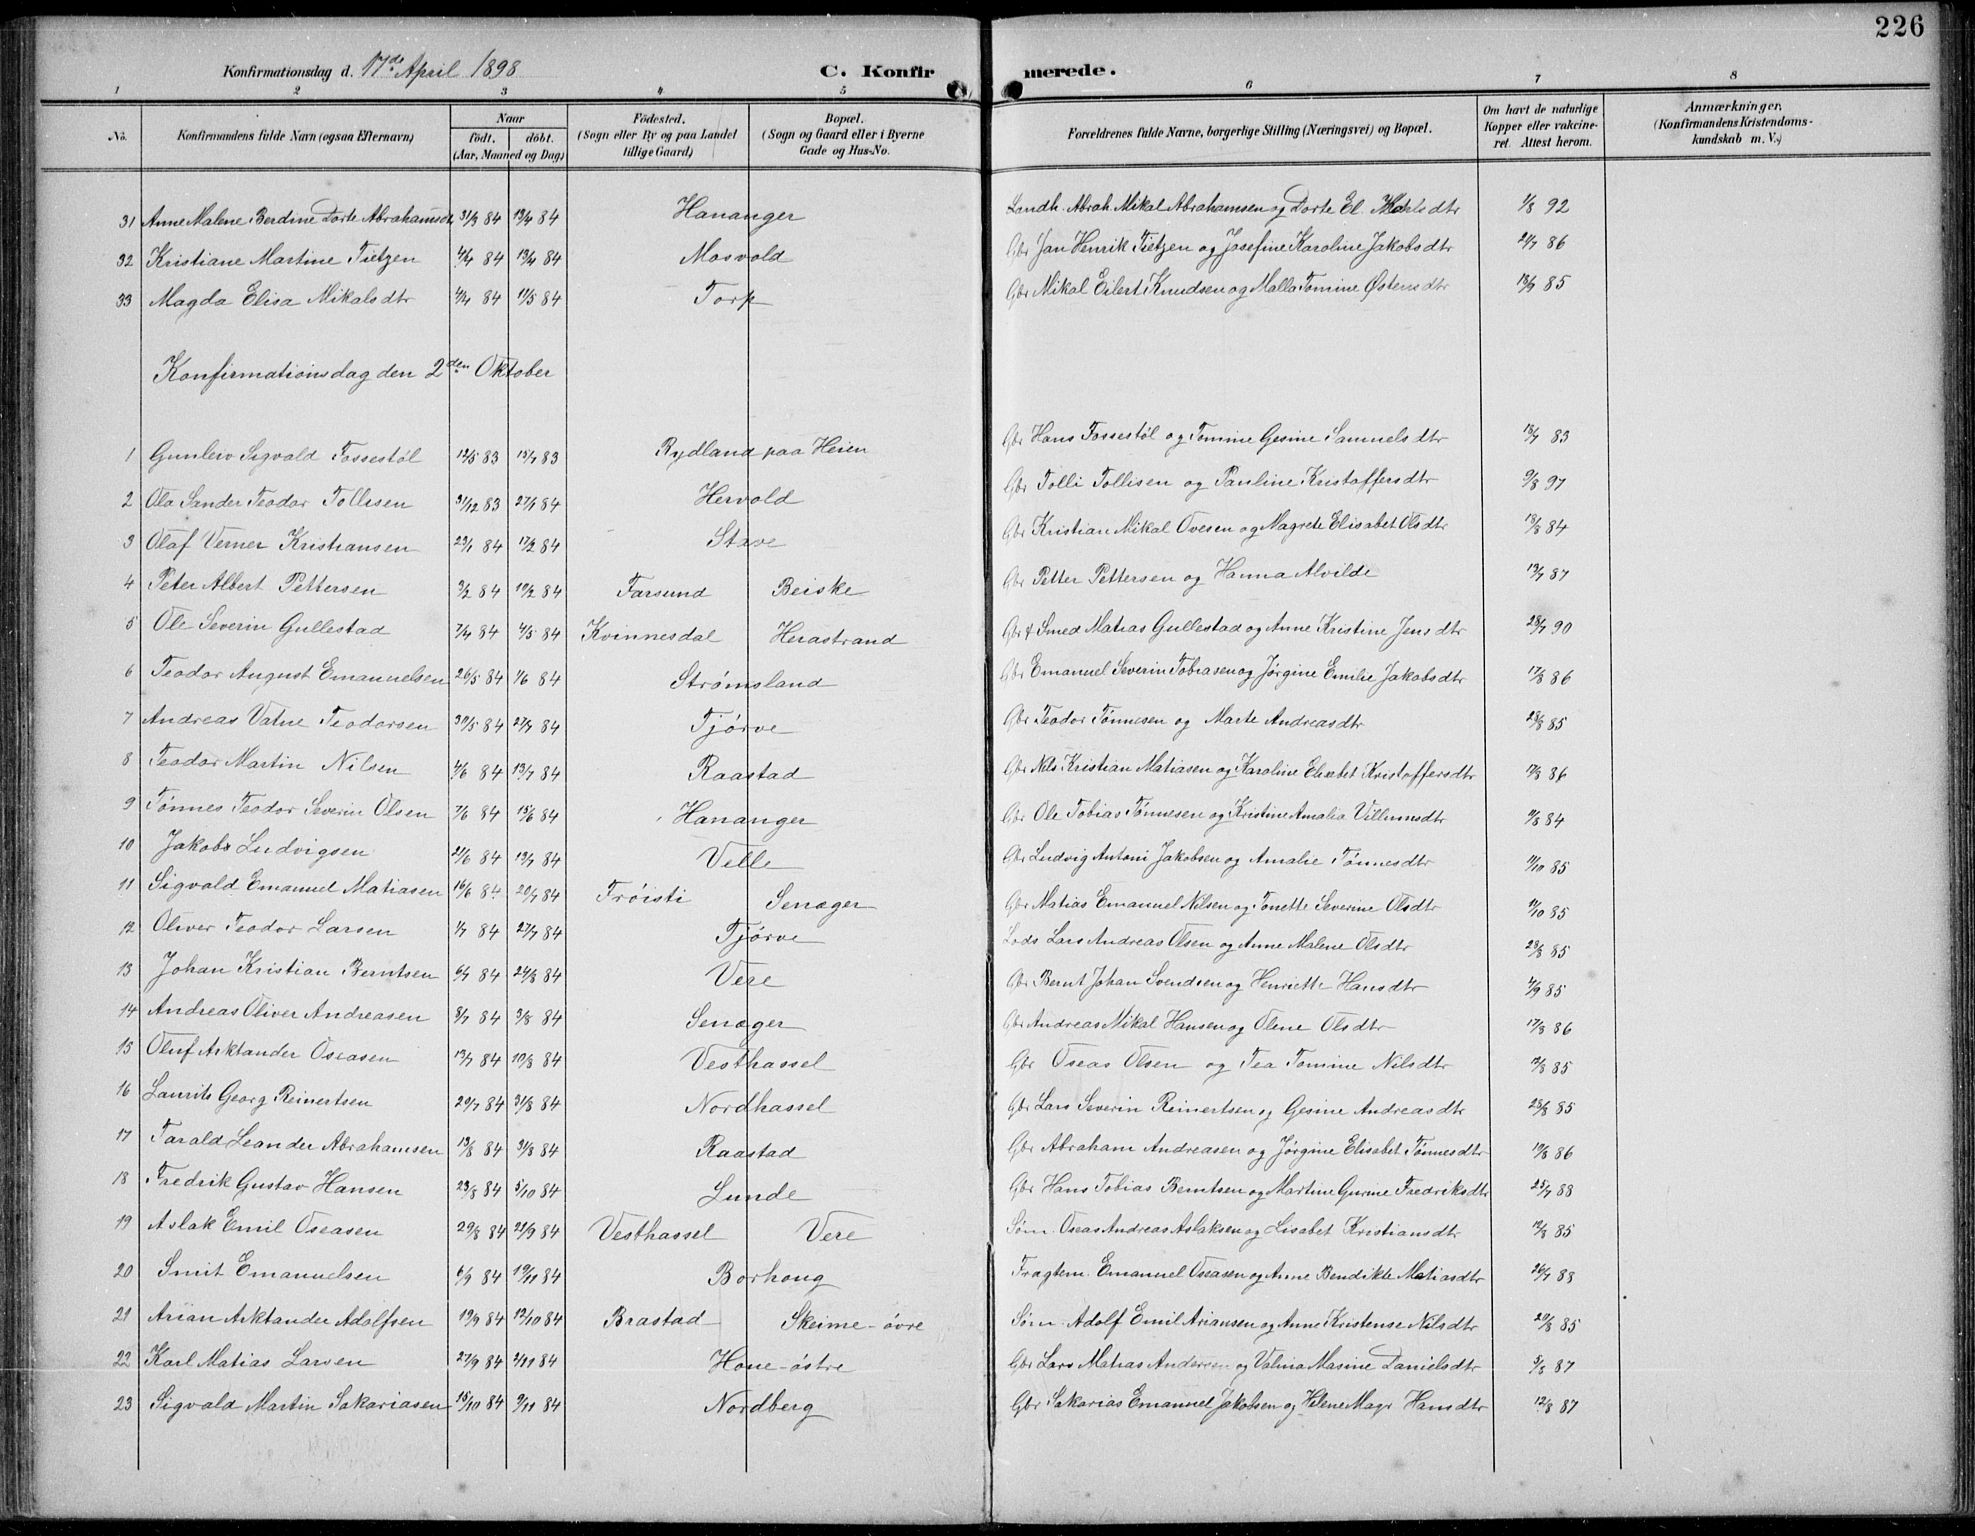 226
Konfirmationsdag d. 17de April 1898 C. Konfirmerede.
1 2 3 4 5 6 7 8
No. Konfirmandens fulde Navn (ogsaa Efternavn) Naar født. døbt. (Aar, Maaned og Dag) Fødested. (Sogn eller By og paa Landet tillige Gaard) Bopæl. (Sogn og Gaard eller i Byerne Gade og Hus-No. Forældrenes fulde Navne, borgerlige Stilling (Næringsvei) og Bopæl. Om havt de naturlige Kopper eller vakcineret. Attest herom. Anmærkninger. (Konfirmandens Kristendomskundskab m. V.)
31 Anne Malene Berdine Dorte Abrahamsdt 31/3 84 13/4 84 Hananger Landh. Abrah. Mikal Abrahamsen og Dorte El. dtr 1/8 92
32 Kristiane Martine Tietzen 4/4 84 13/4 84 Mosvold Gbr Jan Henrik Tietzen og Josefine Karoline Jakobsdtr 21/7 86
33 Magda Elisa Mikalsdtr 4/4 84 11/5 84 Torp Gbr Mikal Eilert Knudsen og Malla Tomine Østensdtr 13/9 85
Konfirmationsdag den 2den Oktober
1 Gunlev Sigvald Fossestøl 12/5 83 15/7 83 Rydland paa Heien Gbr Hans Fossestøl og Tomine Gesine Samuelsdtr 18/7 83
2 Ola Sander Teodor Tollisen 31/12 83 27/1 84 Hervold Gbr Tolli Tollisen og Pauline Kristoffersdtr 9/8 97
3 Olaf Verner Kristiansen 23/1 84 17/2 84 Stave Gbr Kristian Mikal Ovesen og Magrete Elisabet Olsdtr 18/8 84
4 Peter Albert Pettersen 3/2 84 10/2 84 Farsund Beiske Gbr Petter Pettersen og Hanna Alvilde 13/7 87
5 Ole Severin Gullestad 7/4 84 4/5 84 Kvinnesdal Herastrand Gbr & Smed Matias Gullestad og Anne Kristine Jensdtr 28/7 90
6 Teodor August Emanuelsen 26/5 84 1/6 84 Strømsland Gbr Emanuel Severin Tobiasen og Jørgine Emilie Jakobsdtr 17/8 86
7 Andreas Vatne Teodorsen 30/5 84 27/7 84 Tjørve Gbr Teodor Tønnesen og Marte Andreasdtr 28/8 85
8 Teodor Martin Nilsen 4/6 84 13/7 84 Raastad Gbr Nils Kristian Matiasen og Karoline Elisebet Kristoffersdtr 17/8 86
9 Tønnes Teodor Severin Olsen 7/6 84 15/6 84 Hananger Gbr Ole Tobias Tønnesen og Kristine Amalia Villumsdtr 9/8 84
10 Jakob Ludvigsen 21/6 84 13/7 84 Velle Gbr Ludvig Antoni Jakobsen og Amalie Tønnesdtr 11/10 85
11 Sigvald Emanuel Matiasen 16/6 84 20/7 84 Frøisti Senæger Gbr Matias Emanuel Nilsen og Tonette Severine Olsdtr 11/10 85
12 Oliver Teodor Larsen 1/7 84 27/7 84 Tjørve Lods Lars Andreas Olsen og Anne Malene Olsdtr 28/8 85
13 Johan Kristian Berntsen 6/7 84 24/8 84 Vere Gbr Bernt Johan Svendsen og Henriette Hansdtr 4/9 85
14 Andreas Oliver Andreasen 8/7 84 3/8 84 Senæger Gbr Andreas Mikal Hansen og Olene Olsdtr 17/8 86
15 Oluf Arktander Oseasen 13/7 84 10/8 84 Vesthassel Gbr Oseas Olsen og Tea Tomine Nilsdtr 12/8 85
16 Laurits Georg Reinertsen 29/7 84 31/8 84 Nordhassel Gbr Lars Severin Reinertsen og Gesine Andreasdtr 28/8 85
17 Tarald Leander Abrahamsen 13/8 84 31/8 84 Raastad Gbr Abraham Andreasen og Jørgine Elisabet Tønnesdtr 19/8 86
18 Fredrik Gustav Hansen 23/8 84 5/10 84 Lunde Gbr Hans Tobias Berntsen og Martine Gurine Fredriksdtr 25/7 88
19 Aslak Emil Oseasen 29/8 84 21/9 84 Vesthassel Vere Søm. Oseas Andreas Aslaksen og Lisabet Kristiansdtr 12/8 85
20 Smit Emanuelsen 6/9 84 19/11 84 Borhoug Fragtem. Emanuel Oseasen og Anne Bendikte Matiasdtr 26/7 88
21 Arian Arktander Adolfsen 19/9 84 12/10 84 Brastad Skeime-øvre Søm. Adolf Emil Ariansen og Anne Kristense Nilsdtr 20/8 85
22 Karl Matias Larsen 27/9 84 2/11 84 Houe-østre Gbr Lars Matias Andersen og Valina Masine Danielsdtr 5/8 87
23 Sigvald Martin Sakariasen 15/10 84 9/11 84 Nordberg Gbr Sakarias Emanuel Jakobsen og Helene Magr Hansdtr 12/8 87